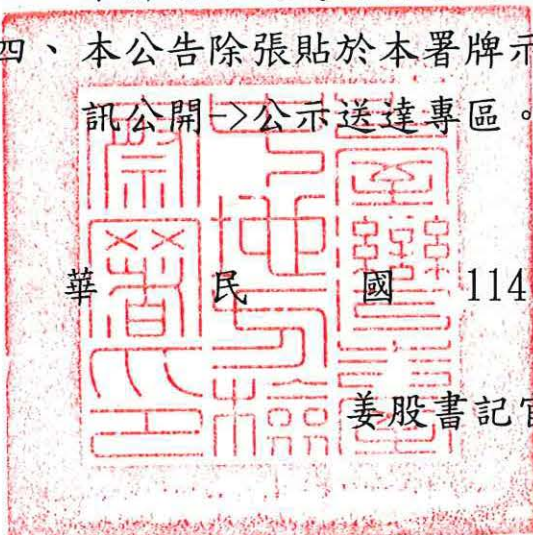 四、本公告除張貼於本署牌示
訊公開->公示送達專區。
華 民 國 114
姜股書記官